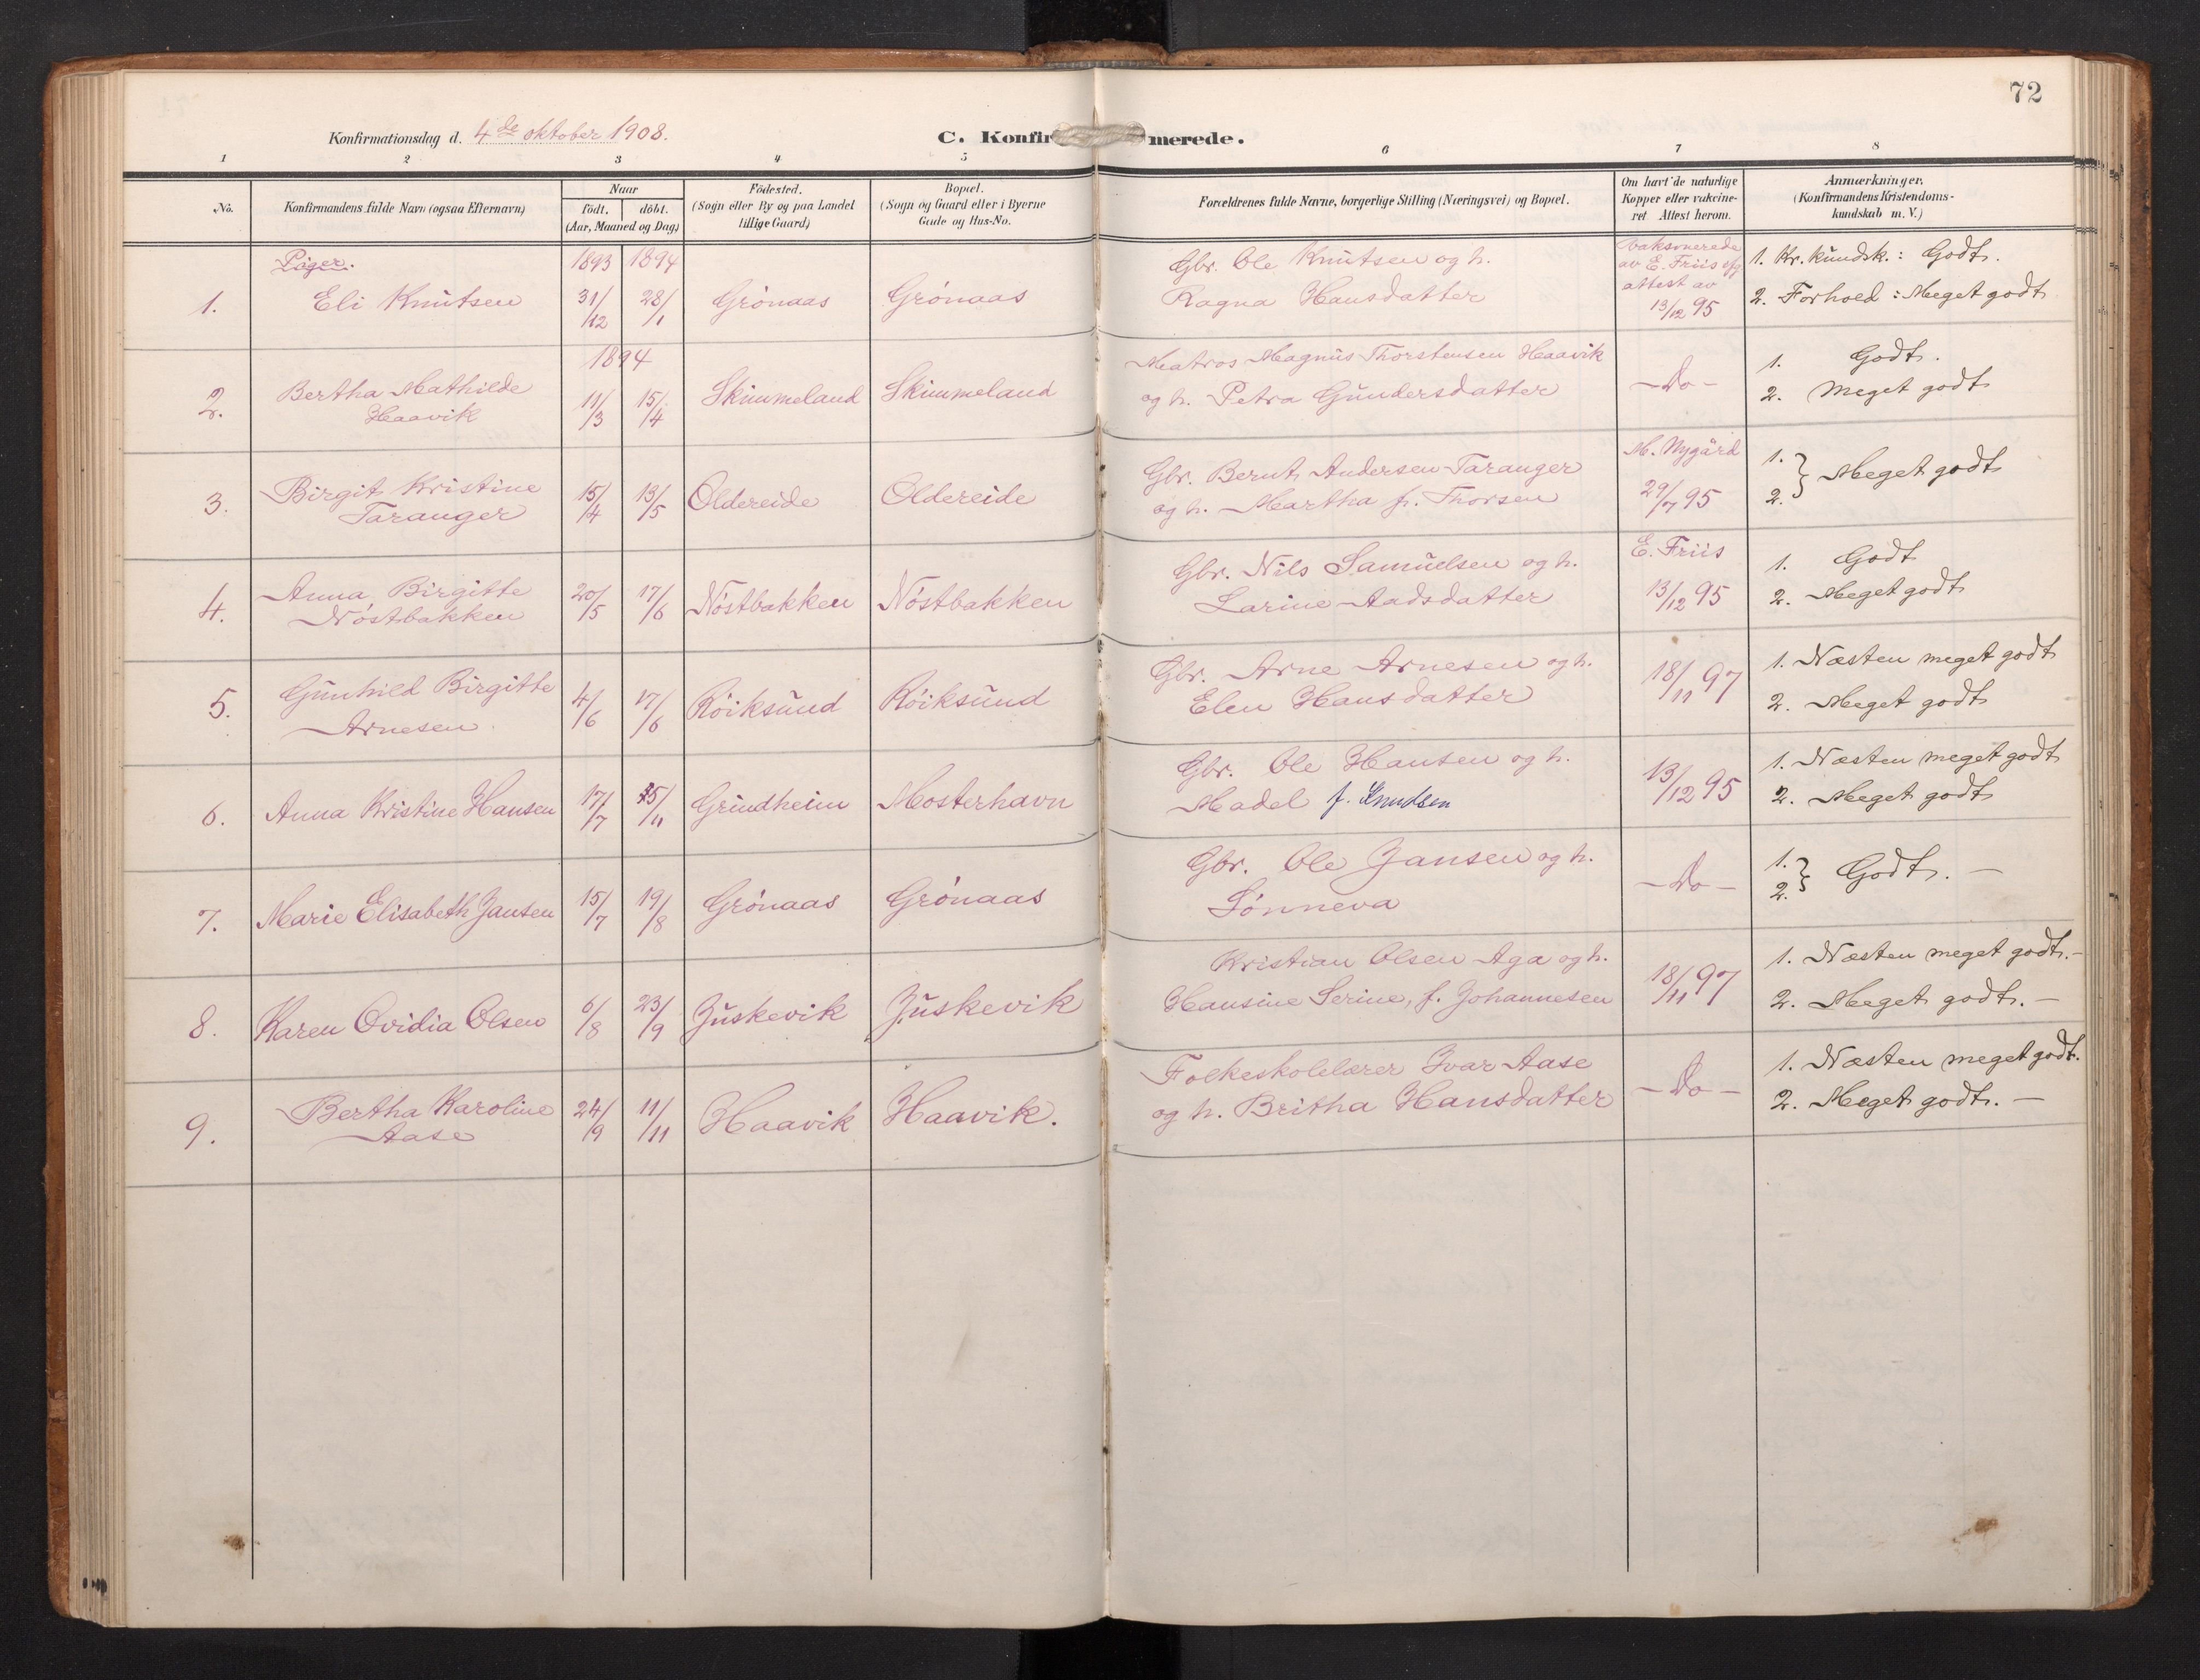 72
Konfirmationsdag d. 4de oktober 1908.
C. Konfirmerede.
1 2 3 4 5 6 7 8
No.
Konfirmandens fulde Navn (ogsaa Efternavn)
Naar
födt. döbt.
(Aar, Maaned og Dag)
Födested.
(Sogn eller By og paa Landet
tillige Gaard)
Bopæl.
(Sogn og Gaard eller i Byerne
Gade og Hus-No.
Forældrenes fulde Navne, borgerlige Stilling (Næringsvei) og Bopæl.
Om havt de naturlige
Kopper eller vakcine-
ret Attest herom.
Anmærkninger.
(Konfirmandens Kristendoms-
kundskab m. V.)
Piger.
1. Eli Knutsen
1893 31/12
1894 28/1
Grónaas
Grónaas
Gbr. Ole Knutsen og h.
Ragna Hansdatter
Vaksinerede
av E. Friis ifg
attest av
13/12 95
1. Kr. kundsk.: Godt.
2. Forhold: Meget godt
2. Bertha Mathilde
Haavik
1894
11/3 15/4
Skimmeland
Skimmeland
Matros Magnus Thorstensen Haavik
og h. Petra Gundersdatter
- Do -
1. Godt.
2. Meget godt
3. Birgit Kristine
Taranger
15/4 13/5
Oldereide
Oldereide
Gbr. Bernt Andersen Taranger
og h. Martha f. Thorsen
M. Nygård
29/7 95
1.
2. } Meget godt
4. Anna Birgitte
Nóstbakken
20/5 17/6
Nóstbakken
Nóstbakken
Gbr. Nils Samuelsen og h.
Larine Aadsdatter
E. Friis
13/12 95
1. Godt
2. Meget godt
5. Gunhild Birgitte
Arnesen
4/6 17/6
Róiksund
Róiksund
Gbr. Arne Arnesen og h.
Elen Hansdatter
18/11 97
1. Næsten meget godt
2. Meget godt
6. Anna Kristine Hansen
17/7 25/11
Grindheim
Mosterhavn
Gbr. Ole Hansen og h.
Madel f. Knudsen
13/12 95
1. Næsten meget godt
2. Meget godt
7. Marie Elisabeth Jansen
15/7 19/8
Grónaas
Grónaas
Gbr. Ole Jansen og h.
Sónneva
- Do -
1.
2. } Godt. -
8. Karen Ovidia Olsen
6/8 23/9
Juskevik
Juskevik
Kristian Olsen Aga og h.
Hansine Serine, f. Johannesen
18/11 97
1. Næsten meget godt. -
2. Meget godt. -
9. Bertha Karoline
Aase
24/9 11/11
Haavik
Haavik.
Folkeskolelærer Ivar Aase
og h. Britha Hansdatter
- Do -
1. Næsten meget godt.
2. Meget godt. -